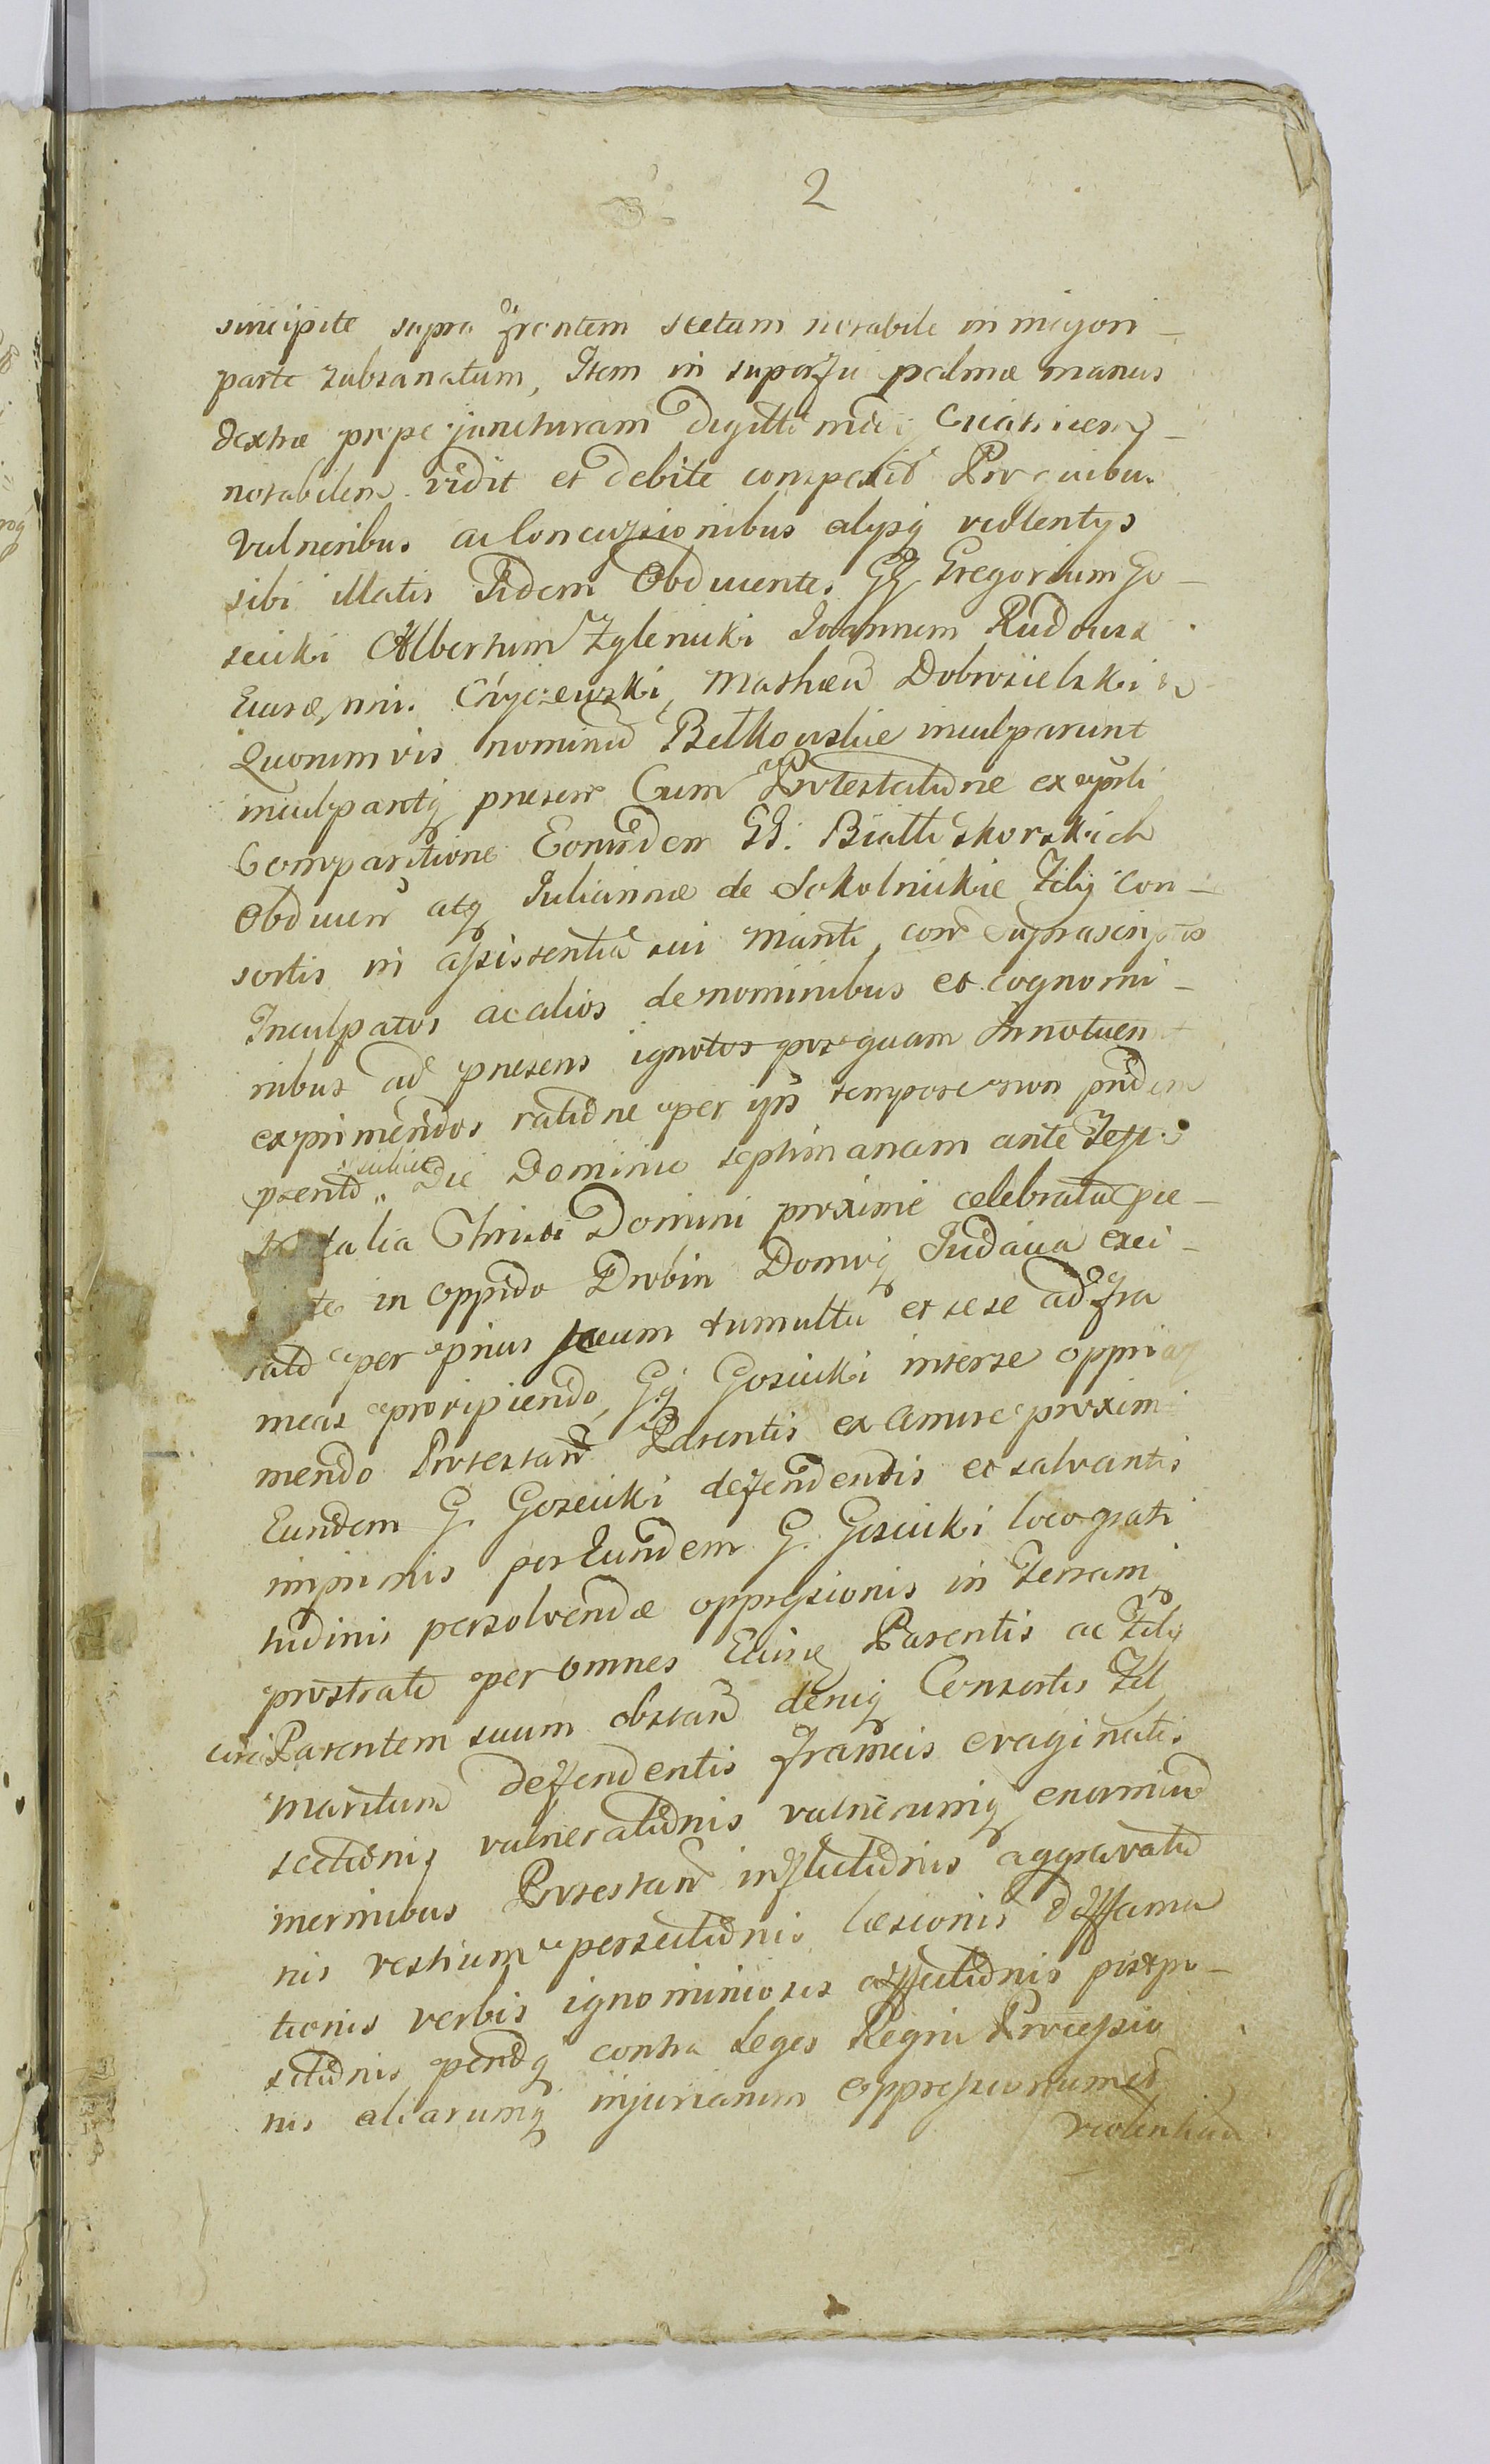 2
sincipite supra frontem sectum notabile in majori -
parte subsanatum, Item in superfic palmæ manus
dextræ prope juncturam digitti medij Cicatricem -
notabilem vidit et debite comperit Pro quibus
Vulneribus ac Concussionibus alijsq violentys
sibi illatis Iidem Obducentes GG Gregorium Go -
scicki Albertum Zglenicki Joannem Rudowsk
Czyczewski, Mathæu Dobrosielski &
Quorumvis nominu Bełkowskie inculparunt
inculpantq presen Cum Protestatione ex ejusdi
Comparitione Eorundem GG. Białłiskorskich
Obducen atq Juliannæ de Sokolnickie Filij con -
sortis in assistentia sui Mariti, con suprascriptos
Inculpatos ac alios de nominibus et cognomi -
nibus ad presens ignotos postquam Innotuerint
exprimendos ratione per ipsos tempore non pridem
Die Dominico septimanam ante Festa
Natalia Christi Domini proxime celebrata pre -
in oppido Drobin Domoq Judaica exci -
tati per prius secum tumultu et sese ad fra
meas proripiendo, GG Gosicki interse oppri
mendo Protestan Parentis ex Camere proximi
Eundem G. Goscicki defendendis et salvantis
inprimis per Eundem G. Goscicki loco grati
tudinis persolvendæ oppressionis in Terram
prostrati per omnes Eumq Parentis ac Filij
circa Parentem suum obstan deniq Consortis Fil
Maritum defendentis frameis evaginatis
sectionis vulnerationis vulnerumq enormiu
inermibus Protestan inflictionis aggravatio
nis vestium persectionis læsionis diffama
tionis verbis ignominiosis affectionis postpo -
sitionis pendq contra Leges Regni Processio
nis aliarumq injuriarum oppressionum et
violentiaru